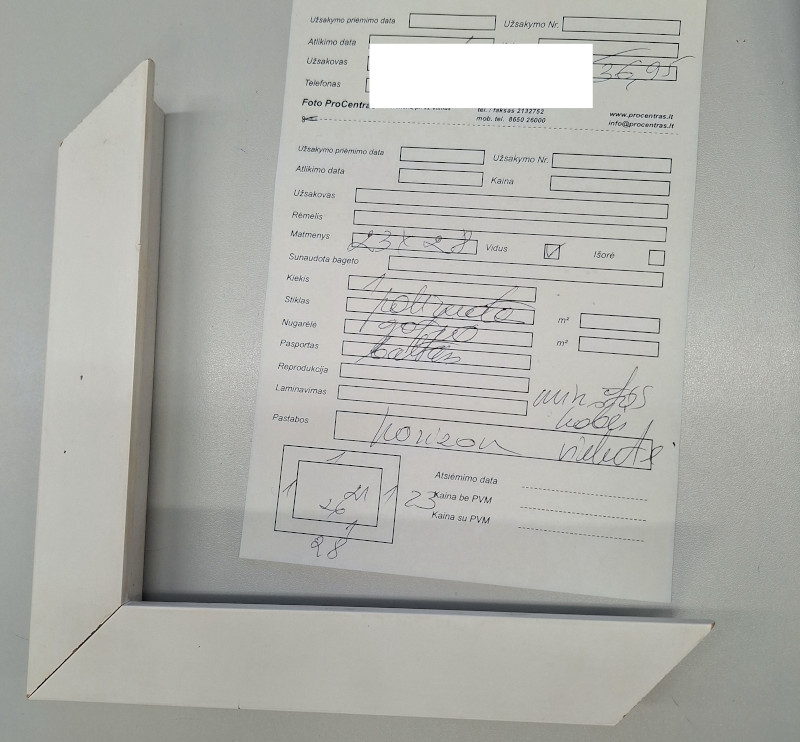 Užsakymo priėmimo data Užsakymo Nr.
Atlikimo data
Užsakovas 36,95
Telefonas
Foto ProCentras tel. / faksas 2132752 www.procentras.lt
mob. tel. 8650 26000 info@procentras.lt
Užsakymo priėmimo data Užsakymo Nr.
Atlikimo data Kaina
Užsakovas
Rėmelis
Matmenys 23x28 Vidus Išorė
Sunaudota bageto
Kiekis
Stiklas m²
Nugarėlė m²
Pasportas baltas
Reprodukcija
Laminavimas
Pastabos horizon
1
1 21 1 23
26 1
28
Atsiėmimo data
Kaina be PVM
Kaina su PVM